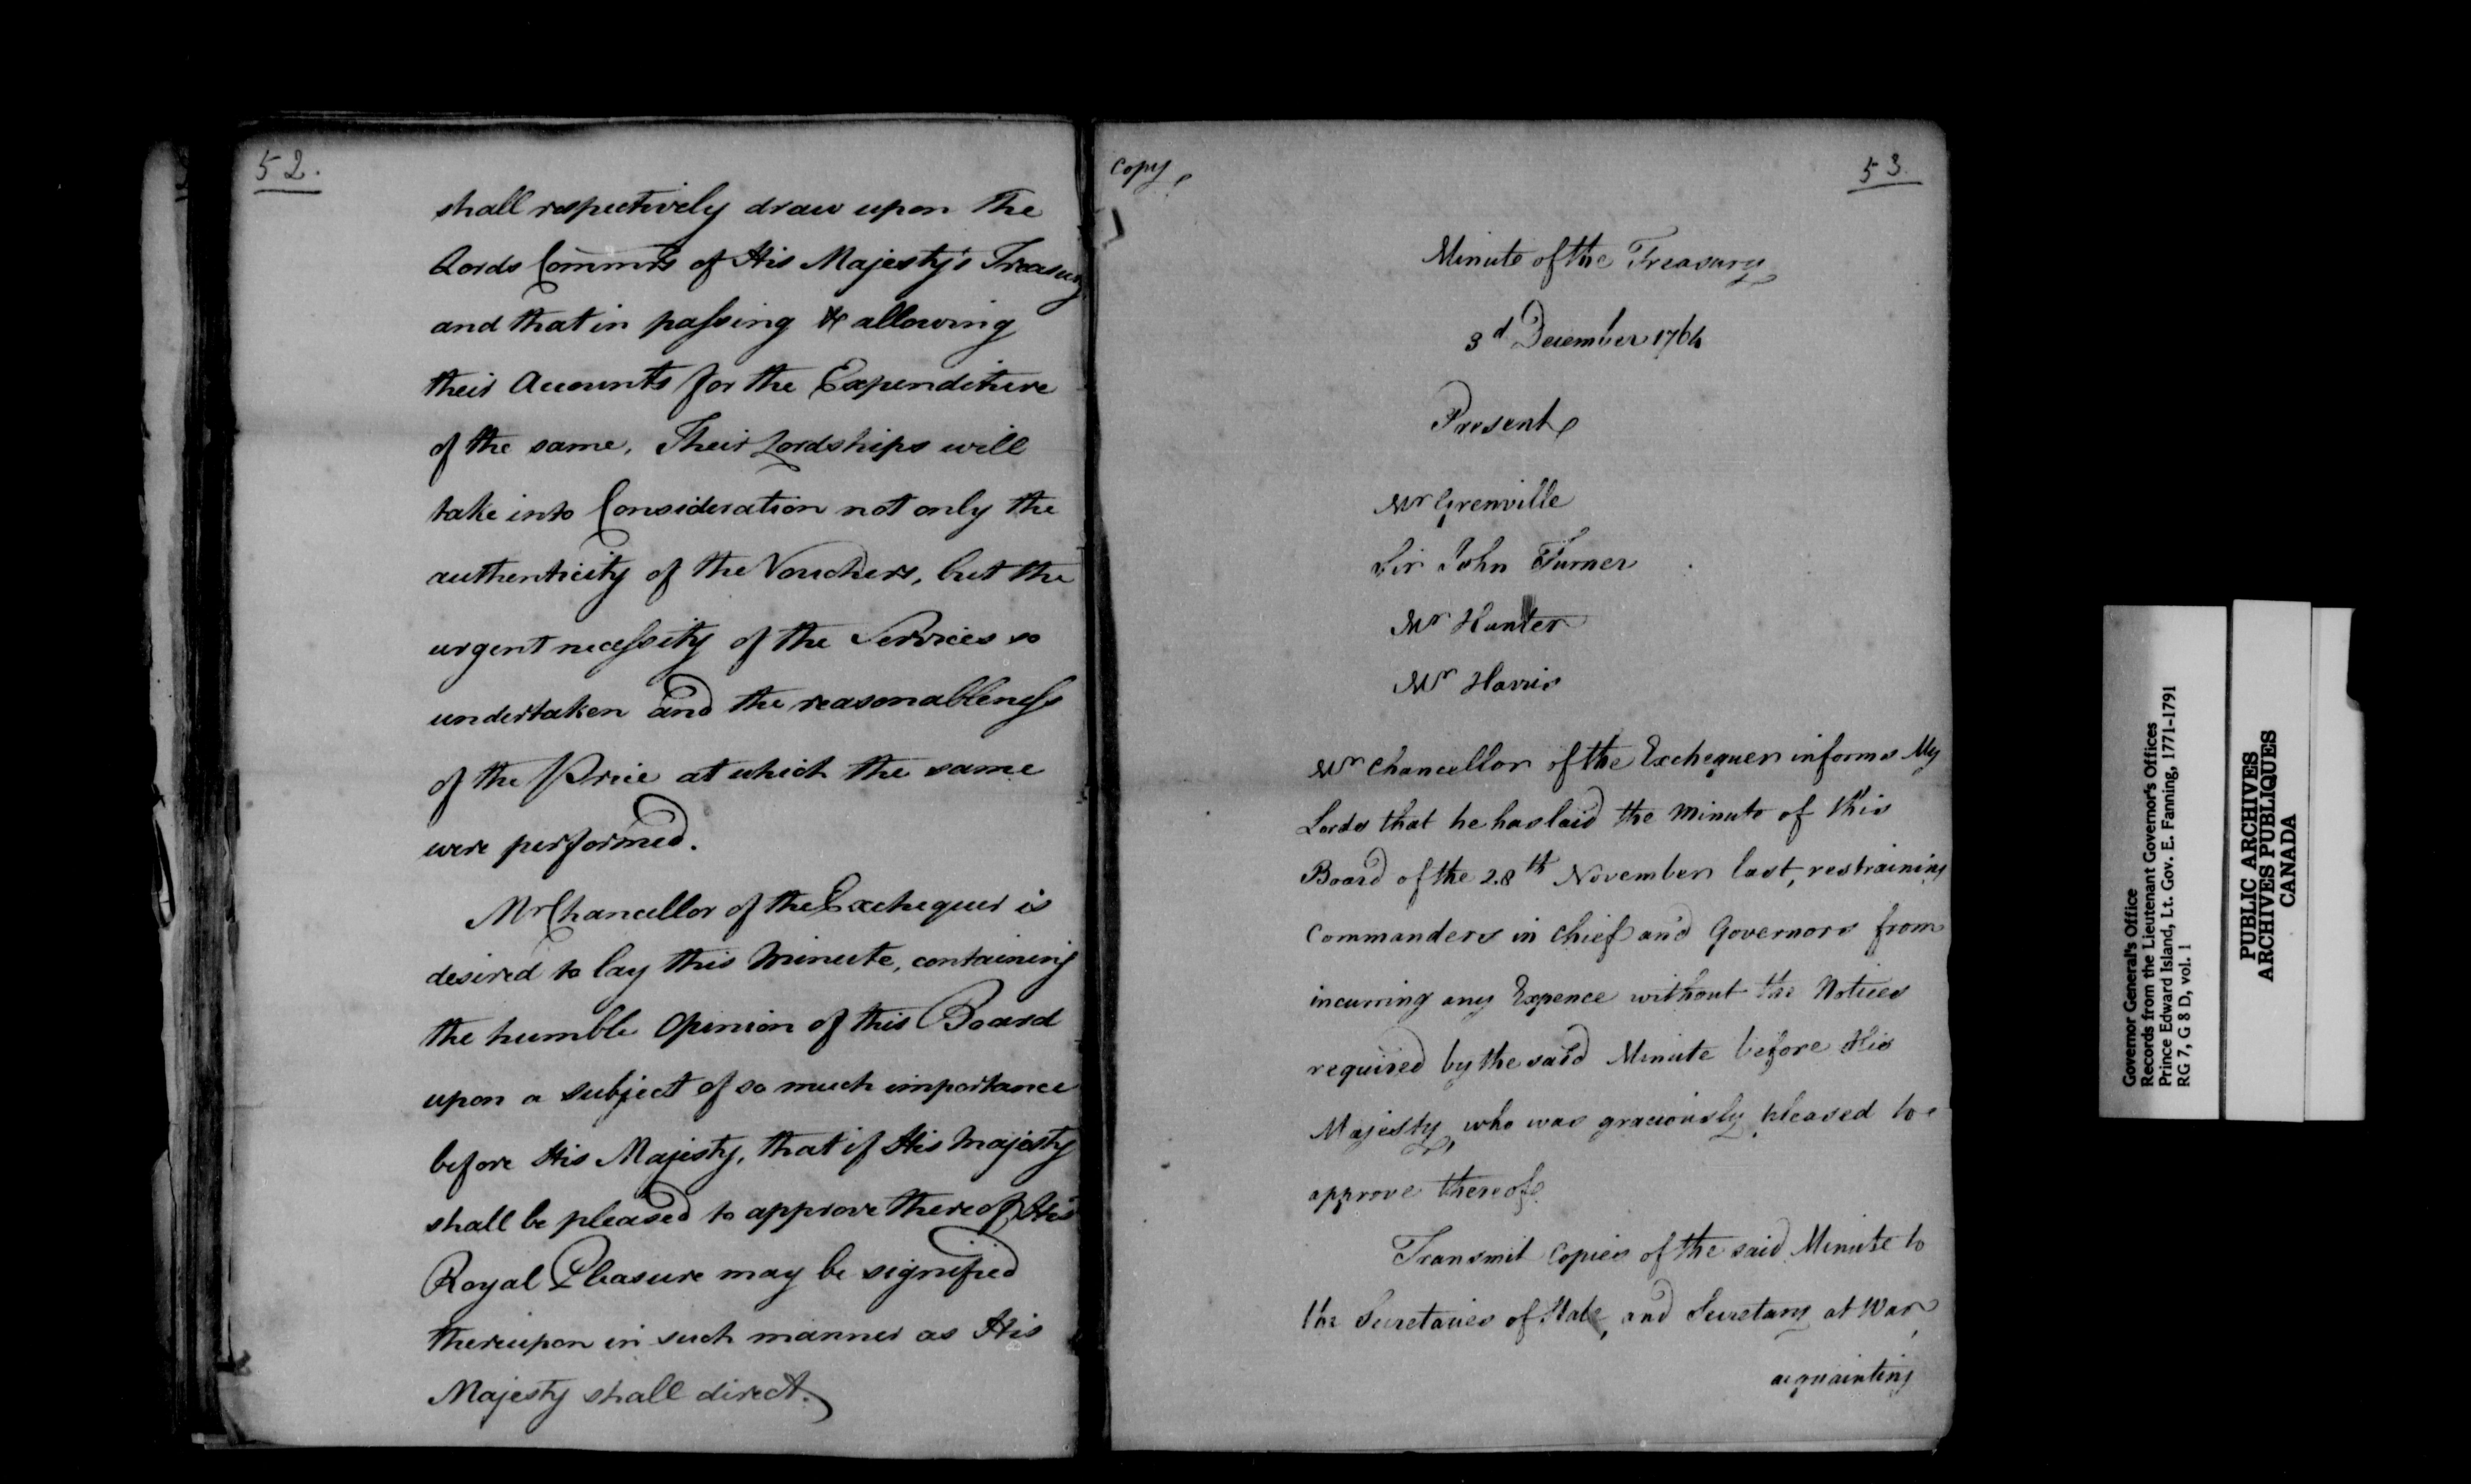 52.
shall respectively draw upon The
Lords Commrs of His Majesty's Treasury
and that in passing & allowing
their Accounts for the Expenditure
of the same, Their Lordships will
take into Consideration not only the
authenticity of the Vouchers, but the
urgent necessity of the Services so
undertaken and the reasonableness
of the Price at which the same
were performed.
Mr Chancellor of the Exchequer is
desired to lay this Minute, containing
the humble Opinion of this Board
upon a subject of so much importance
before His Majesty, that if His Majesty
shall be pleased to approve thereof, His
Royal Pleasure may be signified
thereupon in such manner as His
Majesty shall direct.
Copy
53.
Minute of the Treasury
3d December 1764
Present
Mr Grenville
Sir John Turner
Mr Hunter
Mr Harris
Mr Chancellor of the Exchequer informs My
Lords that he has laid the Minute of this
Board of the 28th November last, restraining
Commanders in Chief and Governors from
incurring any Expence without the Notices
required by the said Minute before His
Majesty, who was graciously pleased to
approve thereof.
Transmit Copies of the said Minute to
the Secretaries of State, and Secretary at War,
acquainting
Governor General's Office
Records from the Lieutenant Governor's Offices
Prince Edward Island, Lt. Gov. E. Fanning, 1771-1791
RG 7, G 8 D, vol. 1
PUBLIC ARCHIVES
ARCHIVES PUBLIQUES
CANADA